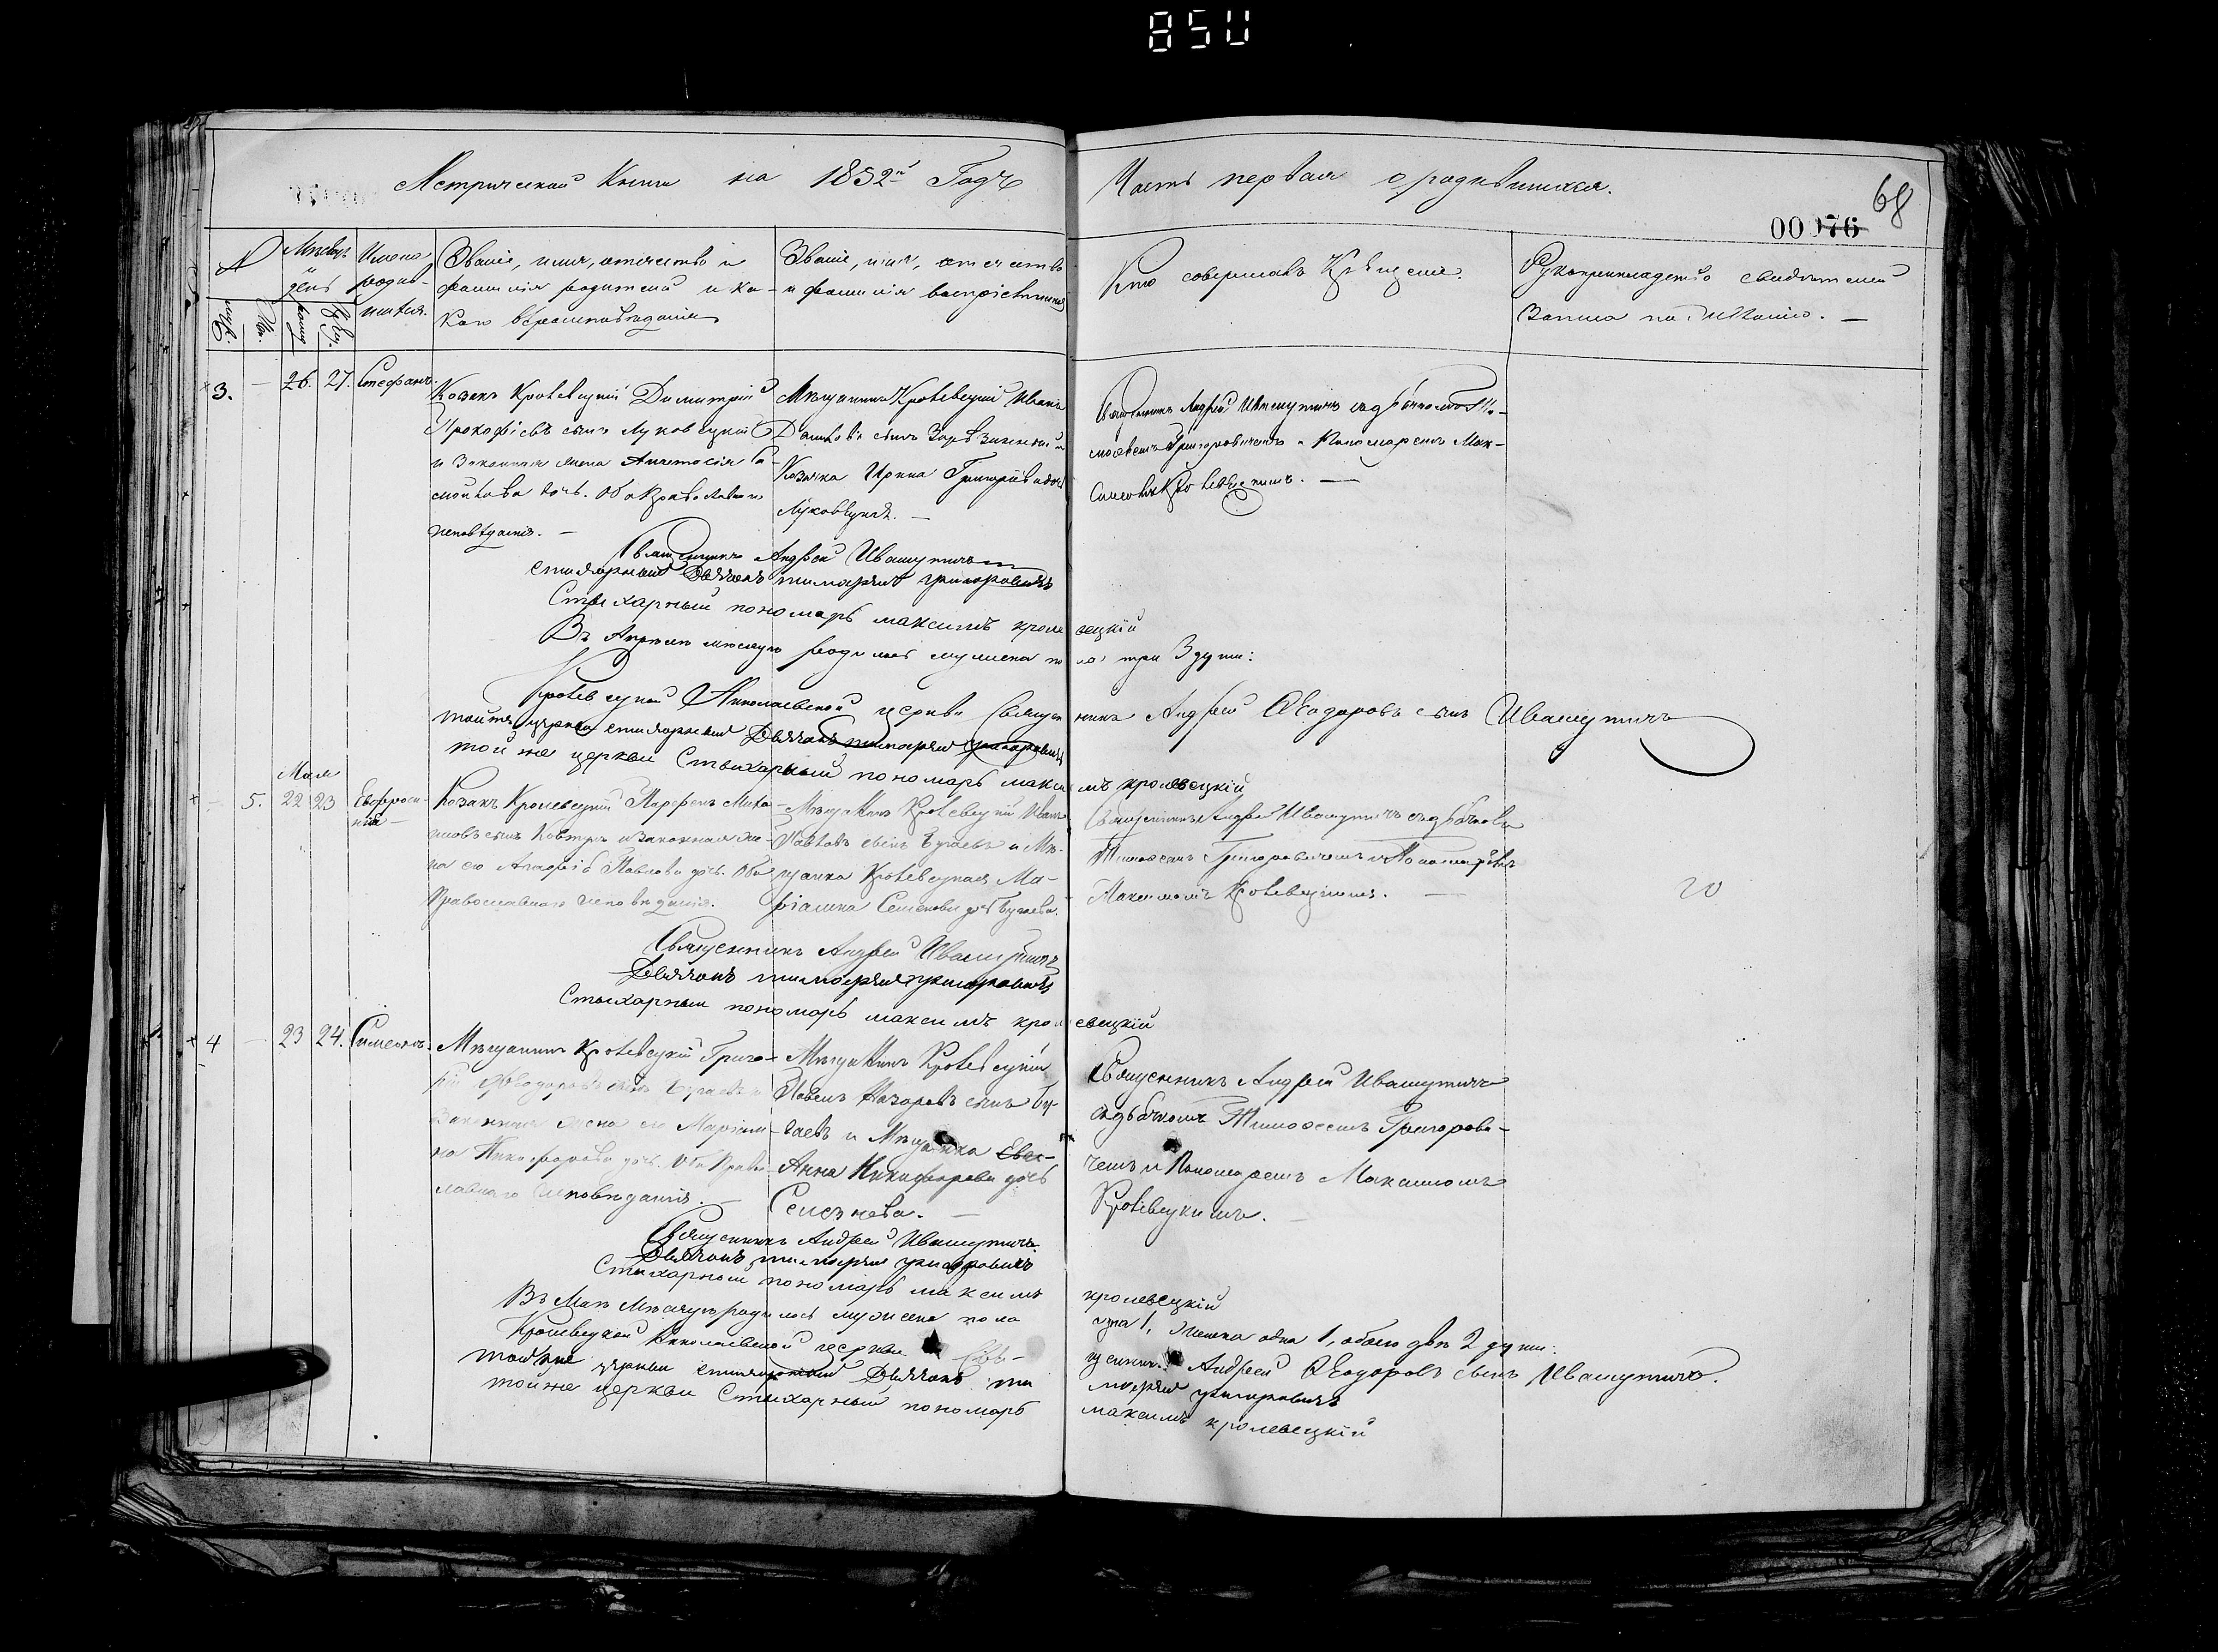 850
Метрической Книги на 1852й Годъ
Часть первая о родившихся.
68
00076
№
Мѣсяцъ и день
Имена родив-
шихся.
муж.
жен.
рожд.
крещ.
Званіе, имя, отечество и
фамилія родителей и ка-
кого вѣроисповѣданія
Званіе, имя, отечество
и фамилія воспріемниковъ
Кто совершалъ Крещеніе.
Рукоприкладство свидѣтелей
записи по желанію. —
3. — 26. 27. Стефанъ.
Козакъ Кролевецкій Димитрій
Прокофіевъ сынъ Луковецкій
и Законная жена Анастасія Са-
мойлова дочь. Оба Православнаго
исповѣданія. —
Мѣщанинъ Кролевецкій Иванъ
сынъ
Козачка Ирина Григоріева дочь
Луковецкая. —
Священникъ Андрей Ивашутичъ съ дьячкомъ Ти-
мофеемъ Григоровичемъ и Пономаремъ Мак-
симомъ Кролевецкимъ. —
Священникъ Андрей Ивашутичъ
стихарный Дьячокъ тимофей григоровичъ
Стихарный пономарь максимъ кролевецкій
Въ Апрелѣ мѣсяцѣ родилось мужеска пола три 3 души:
Кролевецкой Николаевской церкви Священникъ Андрей Ѳеодоровъ сынъ Ивашутичъ
тойже церкви стихарный Дьячокъ тимофей григоровичъ
той же церкви Стихарный пономарь максимъ кролевецкій
Мая
— 5. 22 23 Евфроси-
нія —
Козакъ Кролевецкій Парфенъ Миха-
иловъ сынъ Ковтунъ и законная же-
на его Агафія Павлова дочь. Оба
Православнаго исповѣданія.
Мѣщанинъ Кролевецкій Иванъ
Павловъ сынъ Бугаевъ и Мѣ-
щанка Кролевецкая Ма-
ріамна Семенова дочь Бугаева.
Священникъ Андрей Ивашутичъ съ дьячкомъ
Тимофеемъ Григоровичемъ и Пономаремъ
Максимомъ Кролевецкимъ. —
20
Священникъ Андрей Ивашутичъ
Дьячокъ тимофей григоровичъ
Стихарный пономарь максимъ кролевецкій
4 — 23 24. Симеонъ.
Мѣщанинъ Кролевецкій Григо-
рій Ѳеодоровъ сынъ Бугаевъ и
Законная жена его Маріам-
на Никифорова дочь. Оба Право-
славнаго исповѣданія. —
Мѣщанинъ Кролевецкій
Павелъ Назаровъ сынъ Бу-
гаевъ и Мѣщанка
Анна Никифорова дочь
Селезнева. —
Священникъ Андрей Ивашутичъ
съ дьячкомъ Тимофеемъ Григорови-
чемъ и Пономаремъ Максимомъ
Кролевецкимъ. —
Священникъ Андрей Ивашутичъ.
Дьячокъ тимофей григоровичъ
Стихарный пономарь максимъ кролевецкій
Въ Маѣ Мѣсяцѣ родилось мужеска пола 1, женска одна 1, обоего двѣ 2 души.
Кролевецкой Николаевской церкви Священникъ Андрей Ѳеодоровъ сынъ Ивашутичъ.
тойже церкви стихарный Дьячокъ тимофей григоровичъ
тойже церкви Стихарный пономарь максимъ кролевецкій